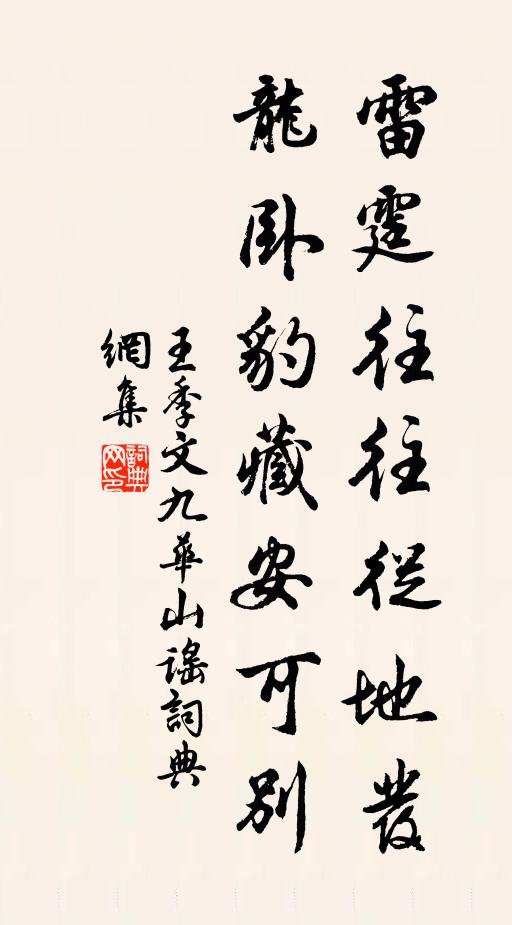 雷霆往往從地發
龍卧豹藏安可別
王季文九華山謠詞典
網集
詞典
网印